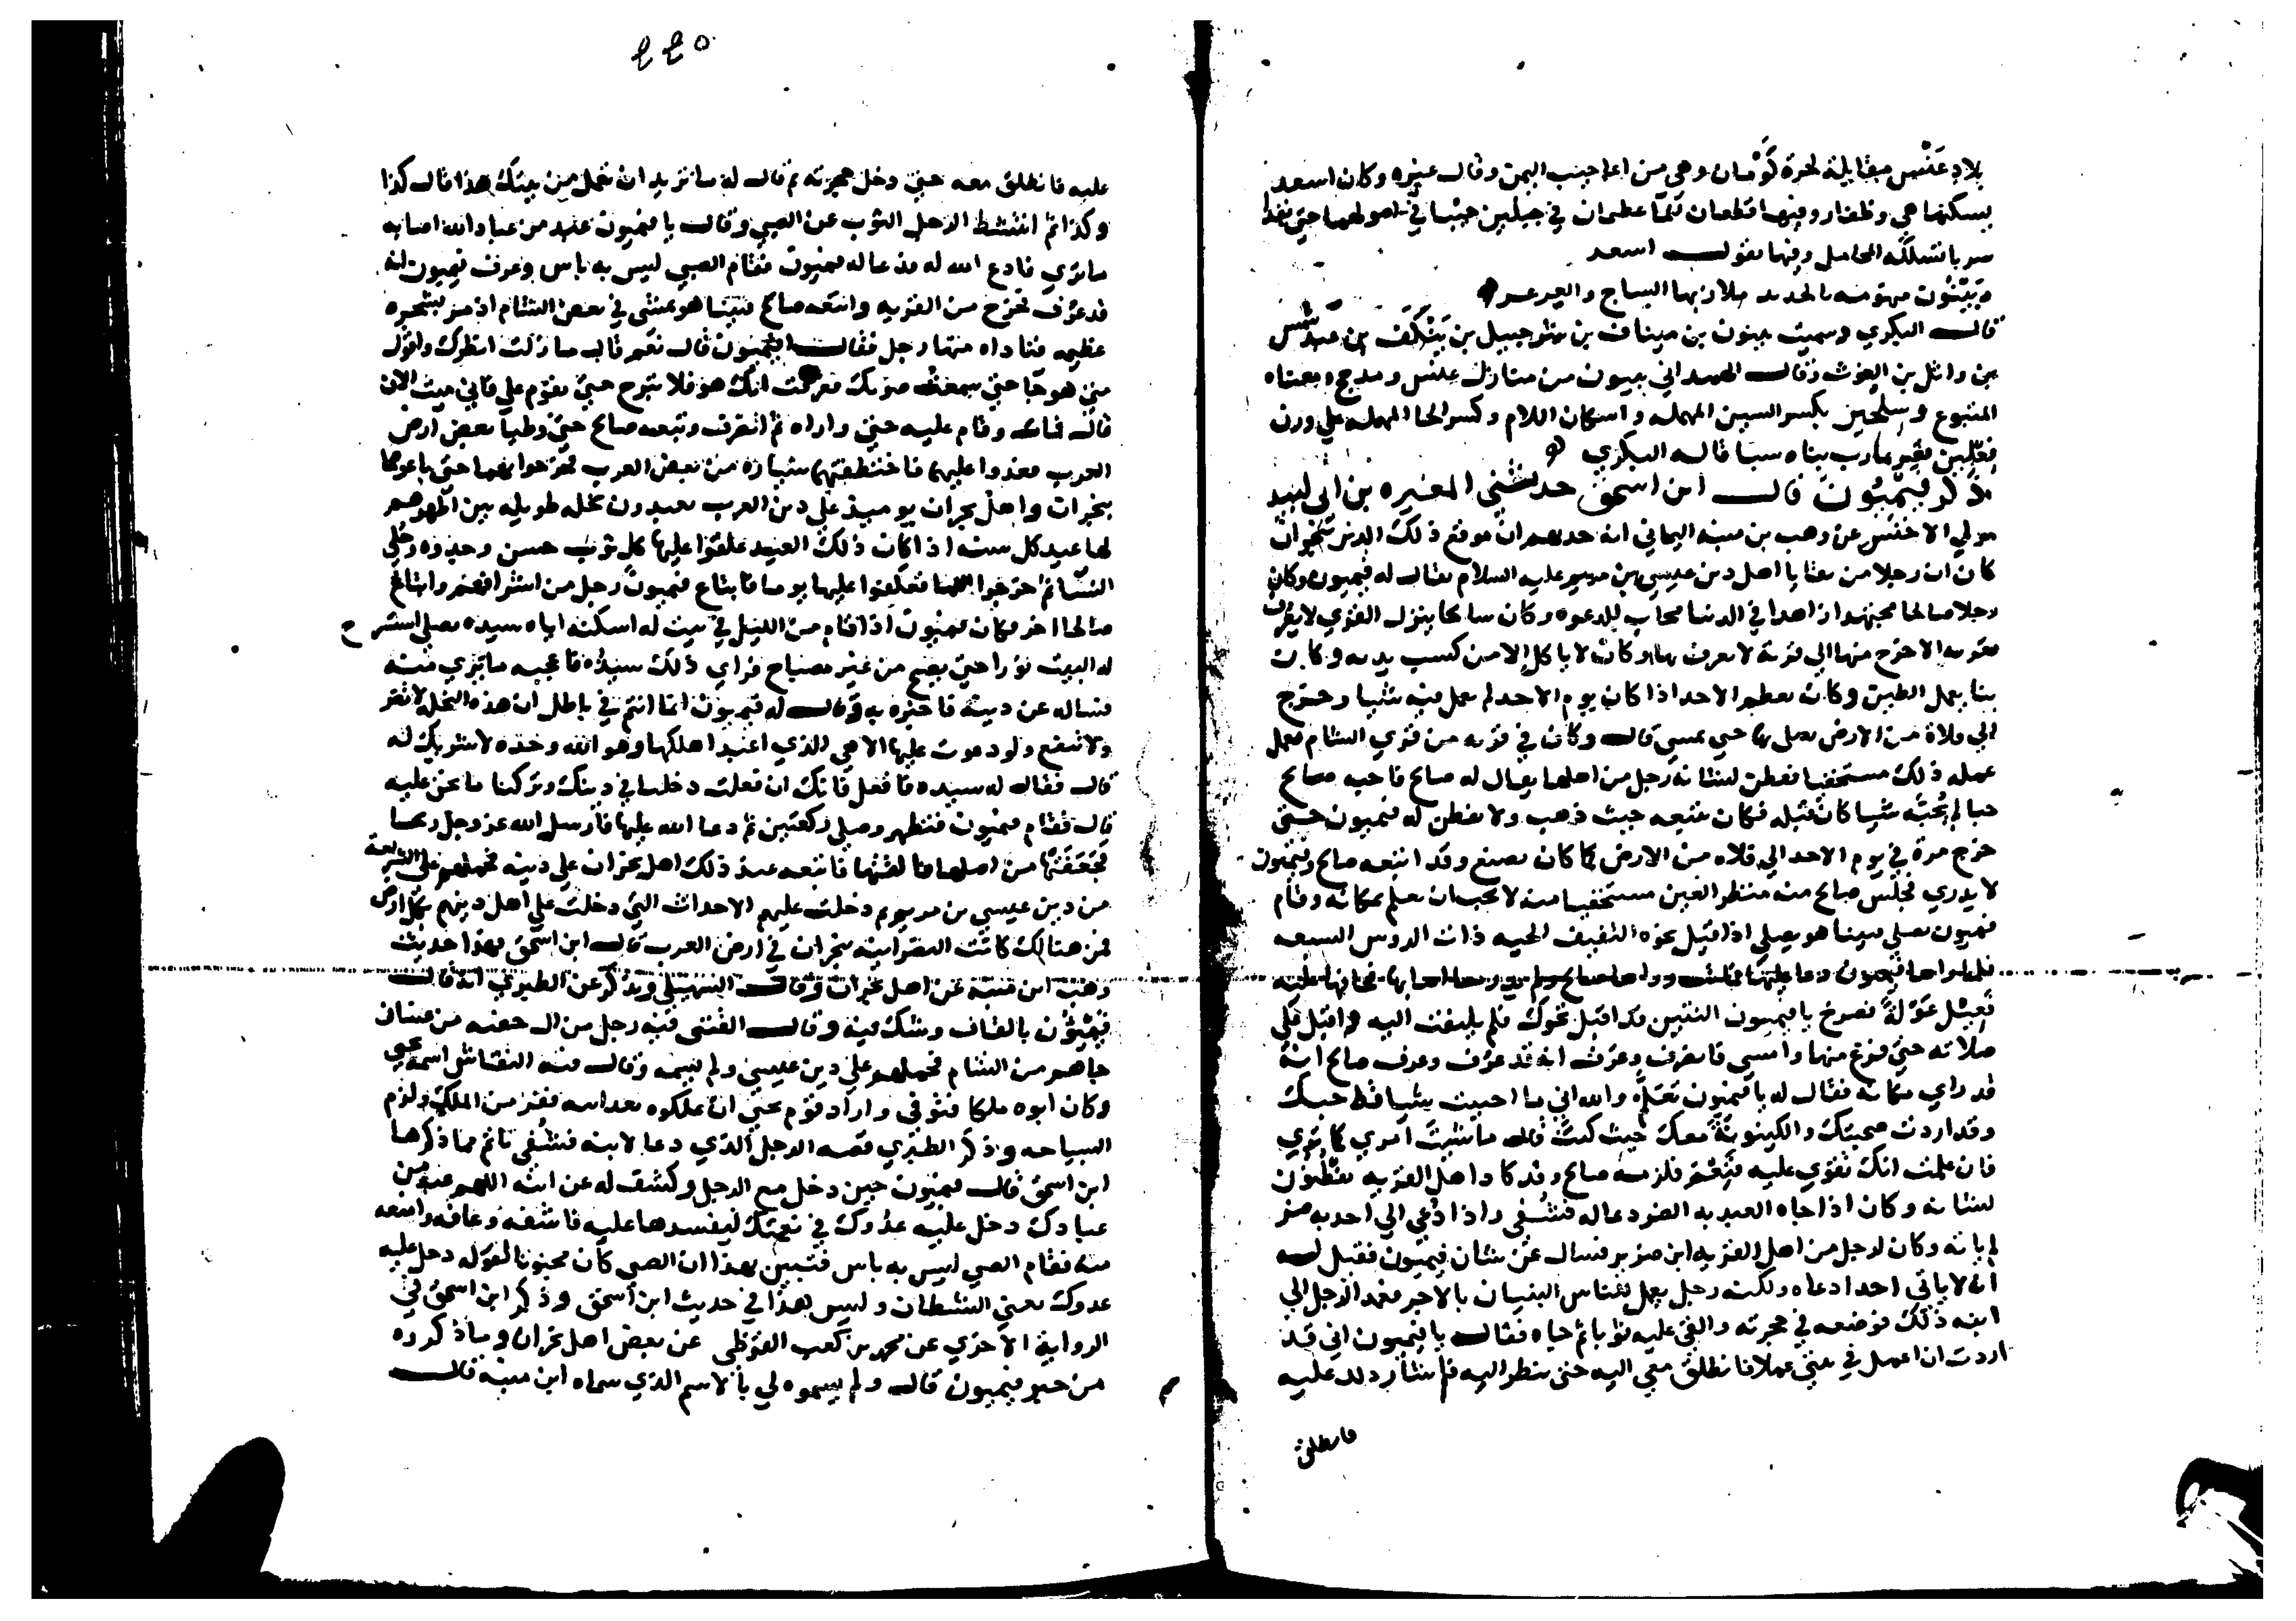 بلاد عَنْس مقابلة لحرة كَوْمان وهي من اعاجيب اليمن وقال غيره وكان اسعد
يسكنها هي وظفار وفيها قلعتان عظيمتان في جبلين حتى نفذا
سربا تسلكه المحامل وفيها يقول اسعد
وبينون مبهومة بالحديد ملازبها الساج والعرعر
قال البكري وسميت ببينون بن ميناف بن شرحبيل بن يَنْكَف بن عبد شمس
بن وائل بن الغوث وقال الهمداني بينون من منازل عنس ومذحج
وسِلْحين بكسر السين المهملة واسكان اللام وكسر الحا المهملة علي وزن
فِعْلِين قصر بمارب بناه سبا قاله البكري
ذكر فيميون قال ابن اسحق حدثني المغيره بن ابي لبيد
مولي الاخنس عن وهب بن منبه اليماني انه حدثهم ان موقع ذلك الدين بنجران
كان ان رجلا من بقايا اهل دين عيسي بن مريم عليه السلام يقال له فيميون وكان
رجلا صالحا مجتهدا زاهدا في الدنيا مجاب الدعوه وكان سايحا ينزل القري لا يعرف
بقرية الا خرج منها الي قرية لا يعرف بها وكان لا ياكل الا من كسب يديه وكان
بنا يعمل الطين وكان يعظم الاحد اذا كان يوم الاحد لم يعمل فيه شيا وخرج
الي فلاة من الارض يصلي بها حتي يمسي قال وكان في قرية من قري الشام يعمل
عمله ذلك مستخفيا ففطن لشانه رجل من اهلها يقال له صالح فاحبه صالح
حبا لم يُحبّه شيا كان قبله فكان يتبعه حيث ذهب ولا يفطن له فيميون حتي
خرج مرة في يوم الاحد الي فلاه من الارض كما كان يصنع وقد اتبعه صالح وفيميون
لا يدري فجلس صالح منه منظر العين مستخفيا منه لا يحب ان يعلم بمكانه وقام
فيميون يصلي فبينا هو يصلي اذ اقبل نحوه التنين الحيه ذات الروس السبعه
فلما راها فيميون دعا عليها فماتت وراها صالح ولم يدر ما اصابها فخافها عليه
فعيل عَوْلُهُ فصرخ يا فيميون التنين قد اقبل نحوك فلم يلتفت اليه واقبل علي
صلاته حتي فرغ منها وامسي فانصرف وعرف انه قد عُرف وعرف صالح انه
قد راي مكانه فقال له يا فيميون تعلم والله اني ما احببت شيا قط حبك
وقد اردت صحبتك والكينونة معك حيث كنت قال ما شيت امري كما تري
فان علمت انك تقوي عليه فنعم فلزمه صالح وقد كاد اهل القريه يفطنون
لشانه وكان اذا جاه العبد به الضر دعا له فشُفي واذا دُعي الي احد به ضر
لم ياته وكان لرجل من اهل القريه ابن ضرير فسال عن شان فيميون فقيل له
انه لا ياتي احدا دعاه ولكنه رجل يعمل للناس البنيان بالاجر فعمد الرجل الي
ابنه ذلك فوضعه في حجرته والقي عليه ثوبا ثم جاه فقال يا فيميون اني قد
اردت ان اعمل في بيتي عملا فانطلق معي اليه حتي تنظر اليه فاشارطك عليه
فانطلق
٤٤٥
عليه فانطلق معه حتي دخل حجرته ثم قال له ما تريد ان تعمل من بيتك هذا قال كذا
وكذا ثم انتشط الرجل الثوب عن الصبي وقال يا فيميون عبد من عباد الله اصابه
ما تري فادع الله له فدعا له فيميون فقام الصبي ليس به باس وعرف فيميون انه
قد عرف فخرج من القريه واتبعه صالح فبينا هو يمشي في بعض الشام اذ مر بشجره
عظيمه فناداه منها رجل فقال افيميون قال نعم قال ما زلت انتظرك واقول
متي هو جا حتي سمعت صوتك فعرفت انك هو فلا تبرح حتي تقوم علي فاني ميت الان
قال فمات وقام عليه حتي واراه ثم انصرف وتبعه صالح حتي وطيا بعض ارض
العرب فعدوا عليهما فاختطفتهما سيارة من بعض العرب فخرجوا بهما حتي باعوهما
بنجران واهل نجران يوميذ علي دين العرب يعبدون نخله طويله بين اظهرهم
لها عيد كل سنه اذا كان ذلك العيد علقوا عليها كل ثوب حسن وجدوه وحُلي
النسا ثم خرجوا اليها فعكفوا عليها يوما فابتاع فيميون رجل من اشرافهم وابتاع
صالحا اخر فكان فيميون اذا قام من الليل في بيت له اسكنه اياه سيده يصلي استسرج
له البيت نورا حتي يصبح من غير مصباح فراي ذلك سيده فاعجبه ما يري منه
فساله عن دينه فاخبره به وقال له فيميون انما انتم في باطل ان هذه النخلة لا تضر
ولا تنفع ولو دعوت عليها الاهي الذي اعبد اهلكها وهو الله وحده لا شريك له
قال فقال له سيده فافعل فانك ان فعلت دخلنا في دينك وتركنا ما نحن عليه
قال فقام فيميون فتطهر وصلي ركعتين ثم دعا الله عليها فارسل الله عز وجل ريحا
فجَعَفَتْها من اصلها فالقتها فاتبعه عند ذلك اهل نجران علي دينه فحملهم علي الشريعة
من دين عيسي بن مريم ثم دخلت عليهم الاحداث التي دخلت علي اهل دينهم بكل ارض
فمن هنالك كانت النصرانيه بنجران في ارض العرب قال ابن اسحق فهذا حديث
وهب ابن منبه عن اهل نجران وقال السهيلي ويذكر عن الطبري انه قال
فيميون بالقاف وشك فيه وقال القتبي فيه رجل من ال جفنه من غسان
جاهم من الشام فحملهم علي دين عيسي ولم يسمه وقال فيه النقاش اسمه يحيي
وكان ابوه ملكا فتوفي واراد قوم يحيي ان يملكوه بعد ابيه ففر من الملك ولزم
السياحه وذكر الطبري قصه الرجل الذي دعا لابنه فشُفي باتم مما ذكرها
ابن اسحق قال فيميون حين دخل مع الرجل وكشف له عن ابنه اللهم عبد من
عبادك دخل عليه عدوك في نعمتك ليفسدها عليه فاشفه وعافه وامنعه
منه فقام الصبي ليس به باس فتبين بهذا ان الصبي كان مجنونا لقوله دخل عليه
عدوك يعني الشيطان وليس هذا في حديث ابن اسحق وذكر ابن اسحق في
الرواية الاخري عن محمد بن كعب القرظي عن بعض اهل نجران وما ذكروه
من خبر فيميون قال ولم يسموه لي بالاسم الذي سماه ابن منبه قال